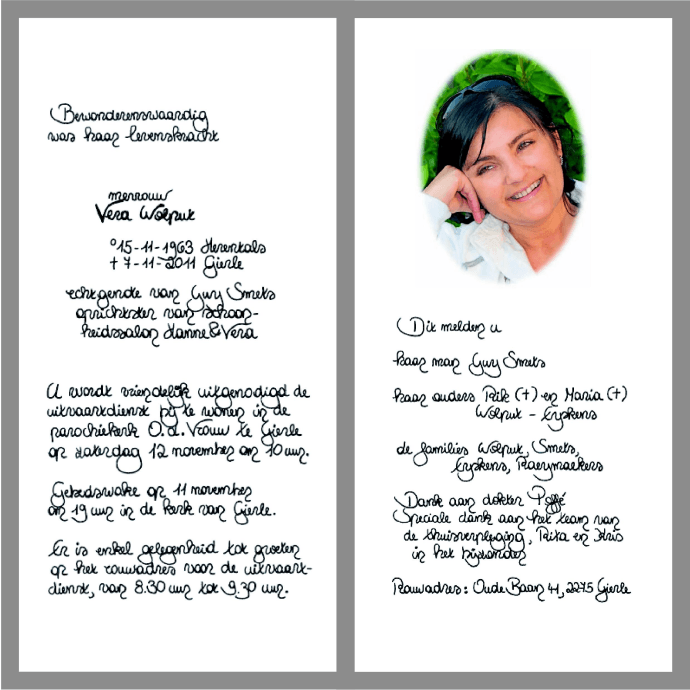 Bewonderenswaardig
was haar levenskracht
mevrouw
Vera Wolput
°15-11-1963 Herentals
† 7-11-2011 Gierle
echtgenote van Guy Smets
oprichtster van schoon-
heidssalon Hanne & Vera
U wordt vriendelijk uitgenodigd de
uitvaartdienst bij te wonen in de
parochiekerk O.L.Vrouw te Gierle
op zaterdag 12 november om 10 uur.
Gebedswake op 11 november
om 19 uur in de kerk van Gierle.
Er is enkel gelegenheid tot groeten
op het rouwadres voor de uitvaart-
dienst, van 8.30 uur tot 9.30 uur.
Dit melden u
haar man Guy Smets
haar ouders Rik (†) en Maria (†)
Wolput - Eyskens
de families Wolput, Smets,
Eyskens, Raeymaekers
Dank aan dokter Poffé
Speciale dank aan het team van
de thuisverpleging, Rita en Kris
in het bijzonder
Rouwadres: Oude Baan 41, 2275 Gierle